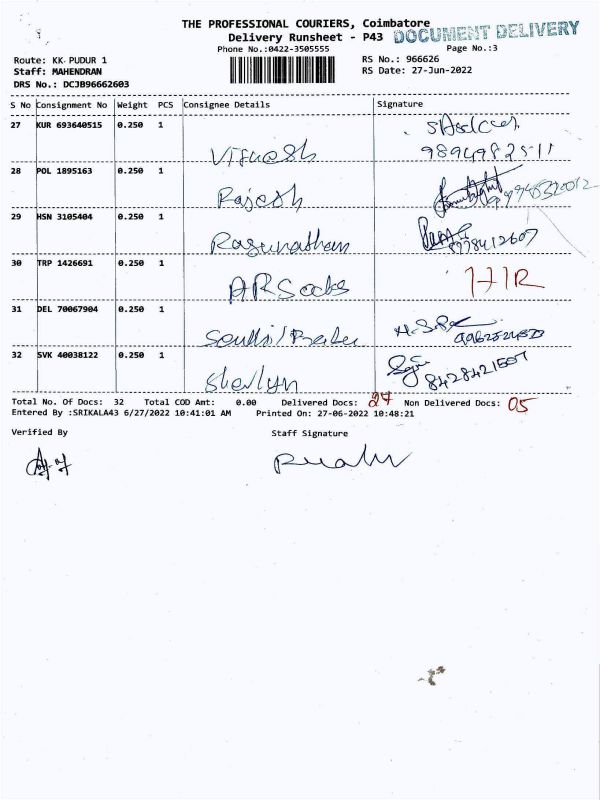 THE PROFESSIONAL COURIERS, Coimbatore
Delivery Runsheet - P43 DOCUMENT DELIVERY
Phone No.:0422-3505555 Page No.:3
Route: KK PUDUR 1 RS No.: 966626
Staff: MAHENDRAN RS Date: 27-Jun-2022
DRS No.: DCJB96662603
S No Consignment No Weight PCS Consignee Details Signature
27 KUR 693640515 0.250 1 Vignesh 9894982511
28 POL 1895163 0.250 1 Rajesh
29 HSN 3105404 0.250 1 Ragunathan
30 TRP 1426691 0.250 1 AR Socks
31 DEL 70067904 0.250 1
32 SVK 40038122 0.250 1 Sherlyn 8428421507
Total No. Of Docs: 32 Total COD Amt: 0.00 Delivered Docs: 27 Non Delivered Docs: 05
Entered By :SRIKALA43 6/27/2022 10:41:01 AM Printed On: 27-06-2022 10:48:21
Verified By Staff Signature